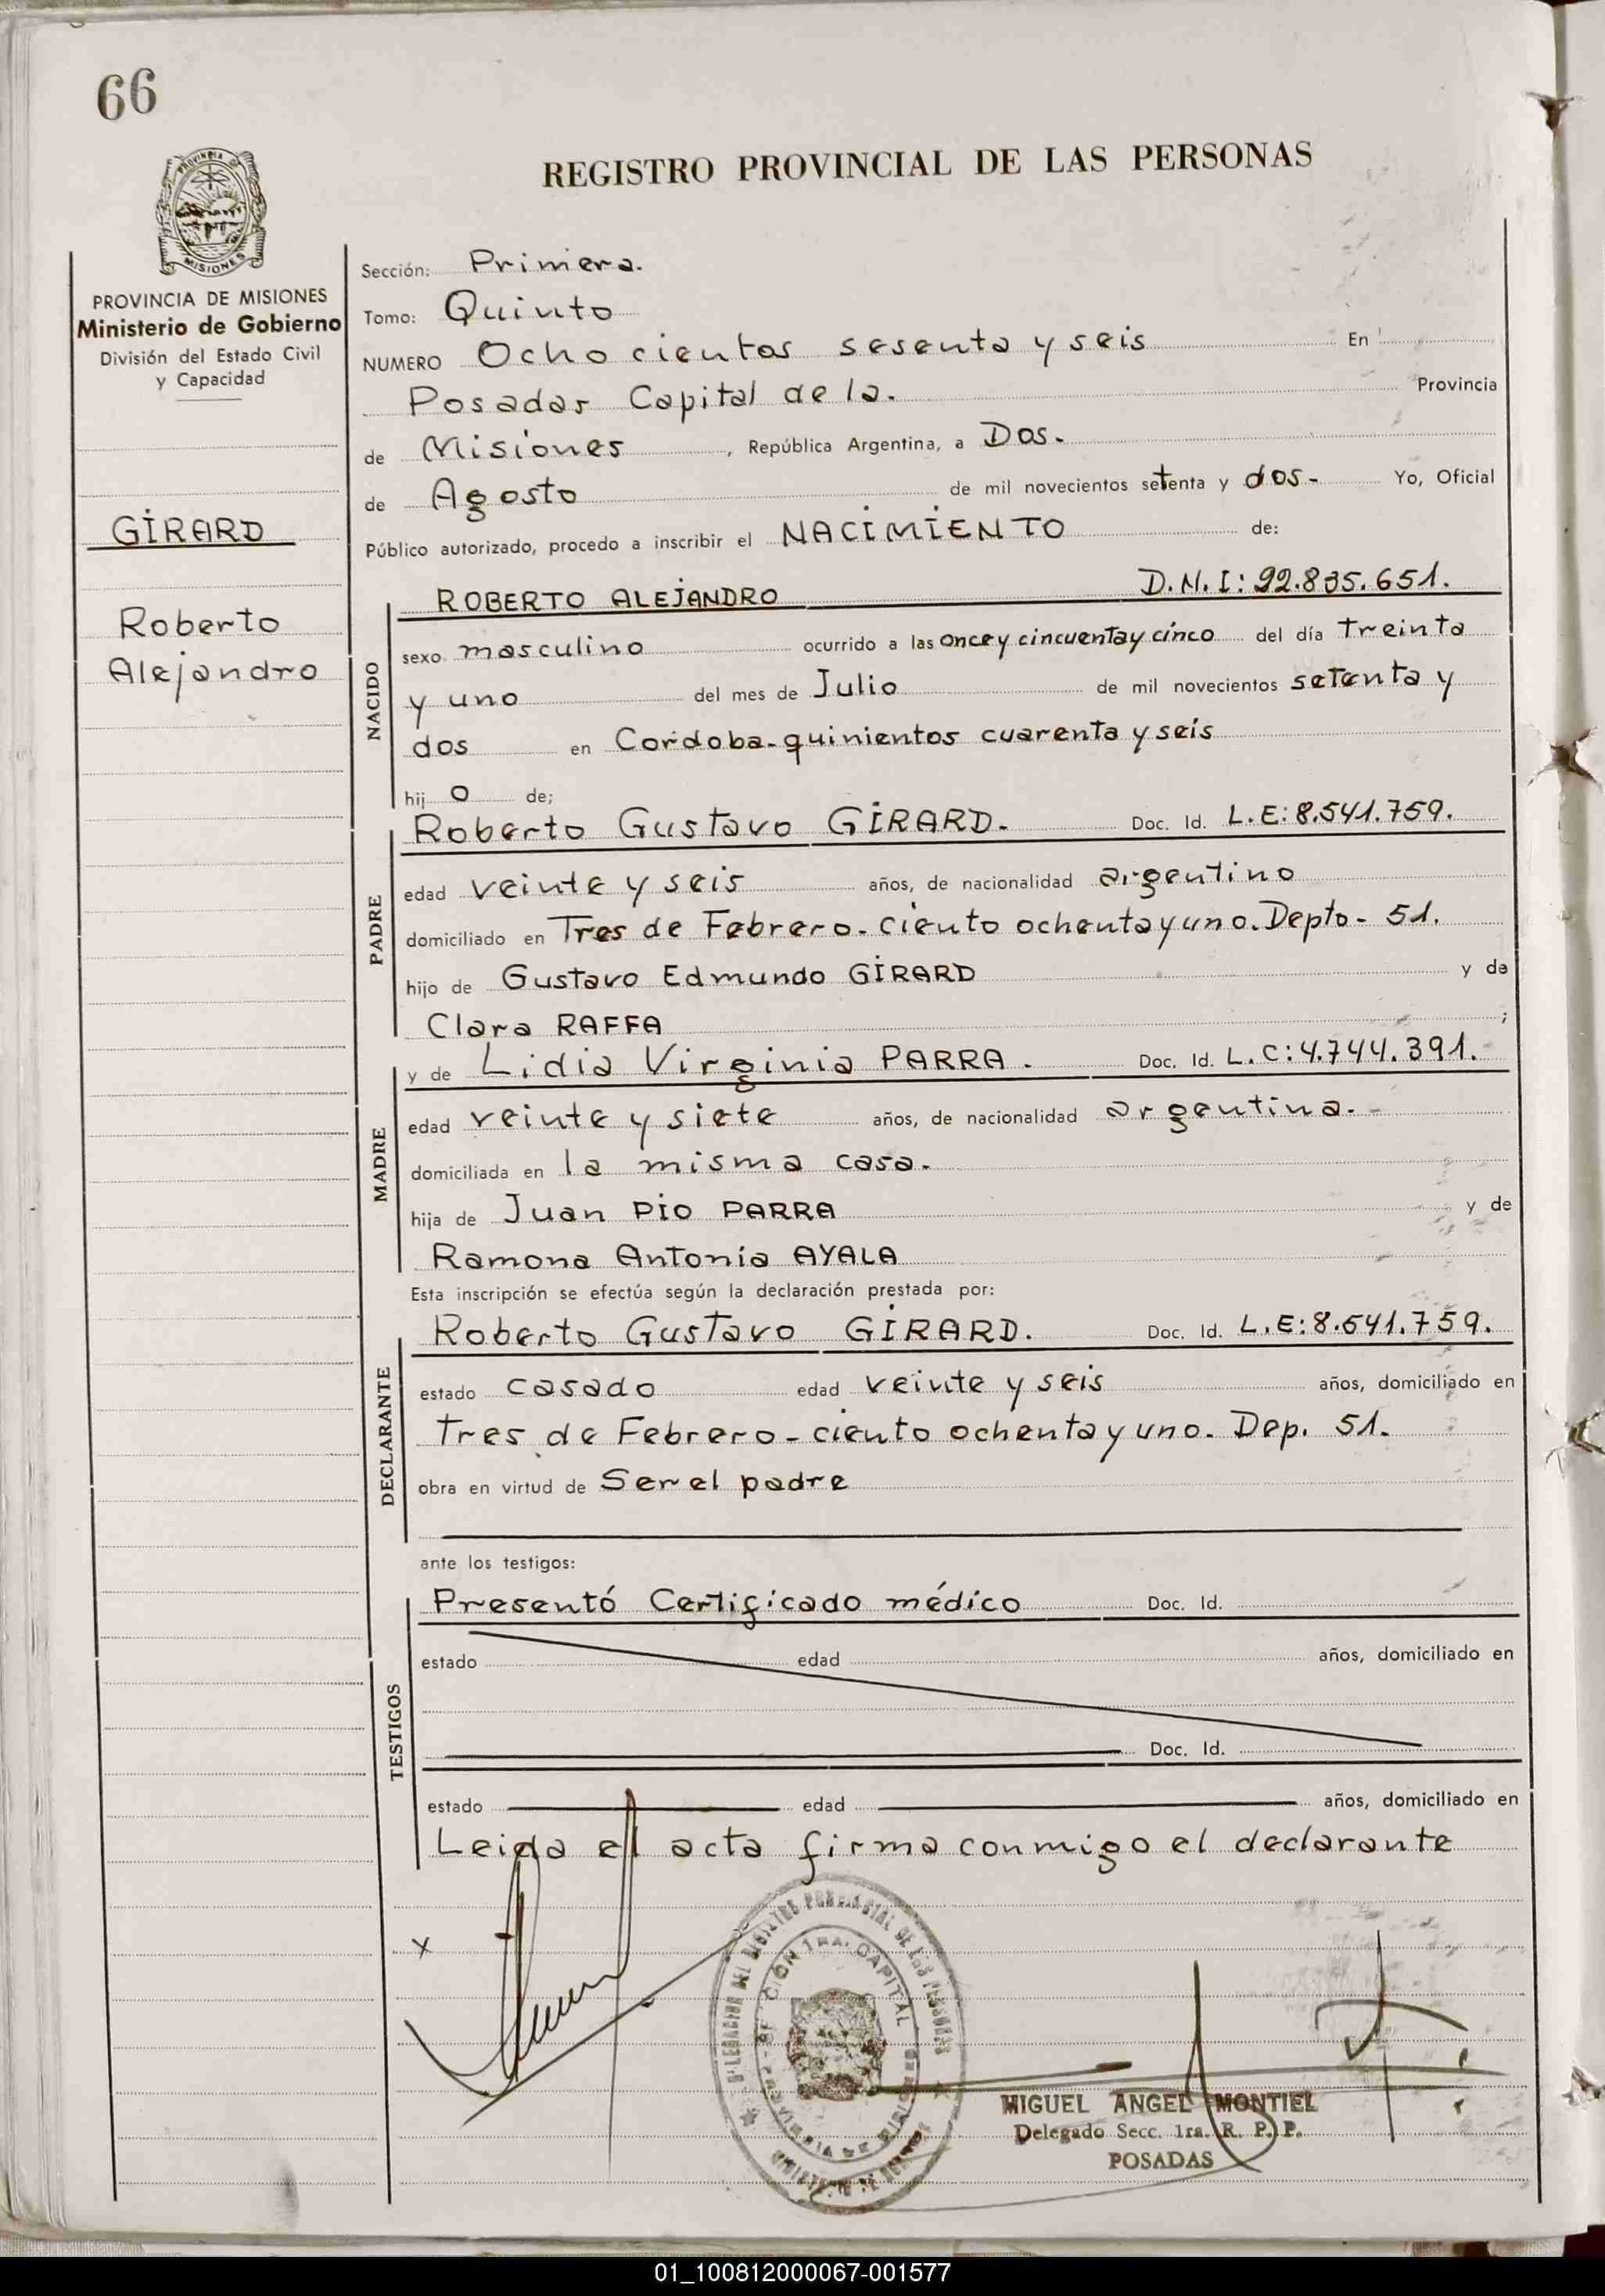 66
REGISTRO PROVINCIAL DE LAS PERSONAS
PROVINCIA DE MISIONES
Ministerio de Gobierno
División del Estado Civil
y Capacidad
GIRARD
Roberto
Alejandro
Sección: Primera.
Tomo: Quinto
NUMERO Ochocientos sesenta y seis En
Posadas Capital de la. Provincia
de Misiones, República Argentina, a Dos.
de Agosto de mil novecientos setenta y dos- Yo, Oficial
Público autorizado, procedo a inscribir el NACIMIENTO de:
NACIDO
ROBERTO ALEJANDRO D.N.I: 92.835.651.
sexo masculino ocurrido a las once y cincuenta y cinco del día treinta
y uno del mes de Julio de mil novecientos setenta y
dos en Córdoba-quinientos cuarenta y seis
hij o de;
PADRE
Roberto Gustavo GIRARD. Doc. Id. L.E: 8.541.759.
edad veinte y seis años, de nacionalidad argentino
domiciliado en Tres de Febrero- ciento ochenta y uno. Depto- 51.
hijo de Gustavo Edmundo GIRARD y de
Clara RAFFA ;
MADRE
y de Lidia Virginia PARRA. Doc. Id. L.C: 4.744.391.
edad veinte y siete años, de nacionalidad argentina.-
domiciliada en la misma casa.
hija de Juan Pio PARRA y de
Ramona Antonia AYALA
Esta inscripción se efectúa según la declaración prestada por:
DECLARANTE
Roberto Gustavo GIRARD. Doc. Id. L.E: 8.541.759.
estado casado edad veinte y seis años, domiciliado en
Tres de Febrero- ciento ochenta y uno. Dep. 51.
obra en virtud de Ser el padre
ante los testigos:
TESTIGOS
Presentó Certificado médico Doc. Id.
estado edad años, domiciliado en
Doc. Id.
estado edad años, domiciliado en
Leida el acta firma conmigo el declarante
x
DELEGACION DEL REGISTRO PROVINCIAL DE LAS PERSONAS
SECCION 1RA. CAPITAL
PROVINCIA DE MISIONES
MIGUEL ANGEL MONTIEL
Delegado Secc. 1ra. R. P. P.
POSADAS
01_100812000067-001577